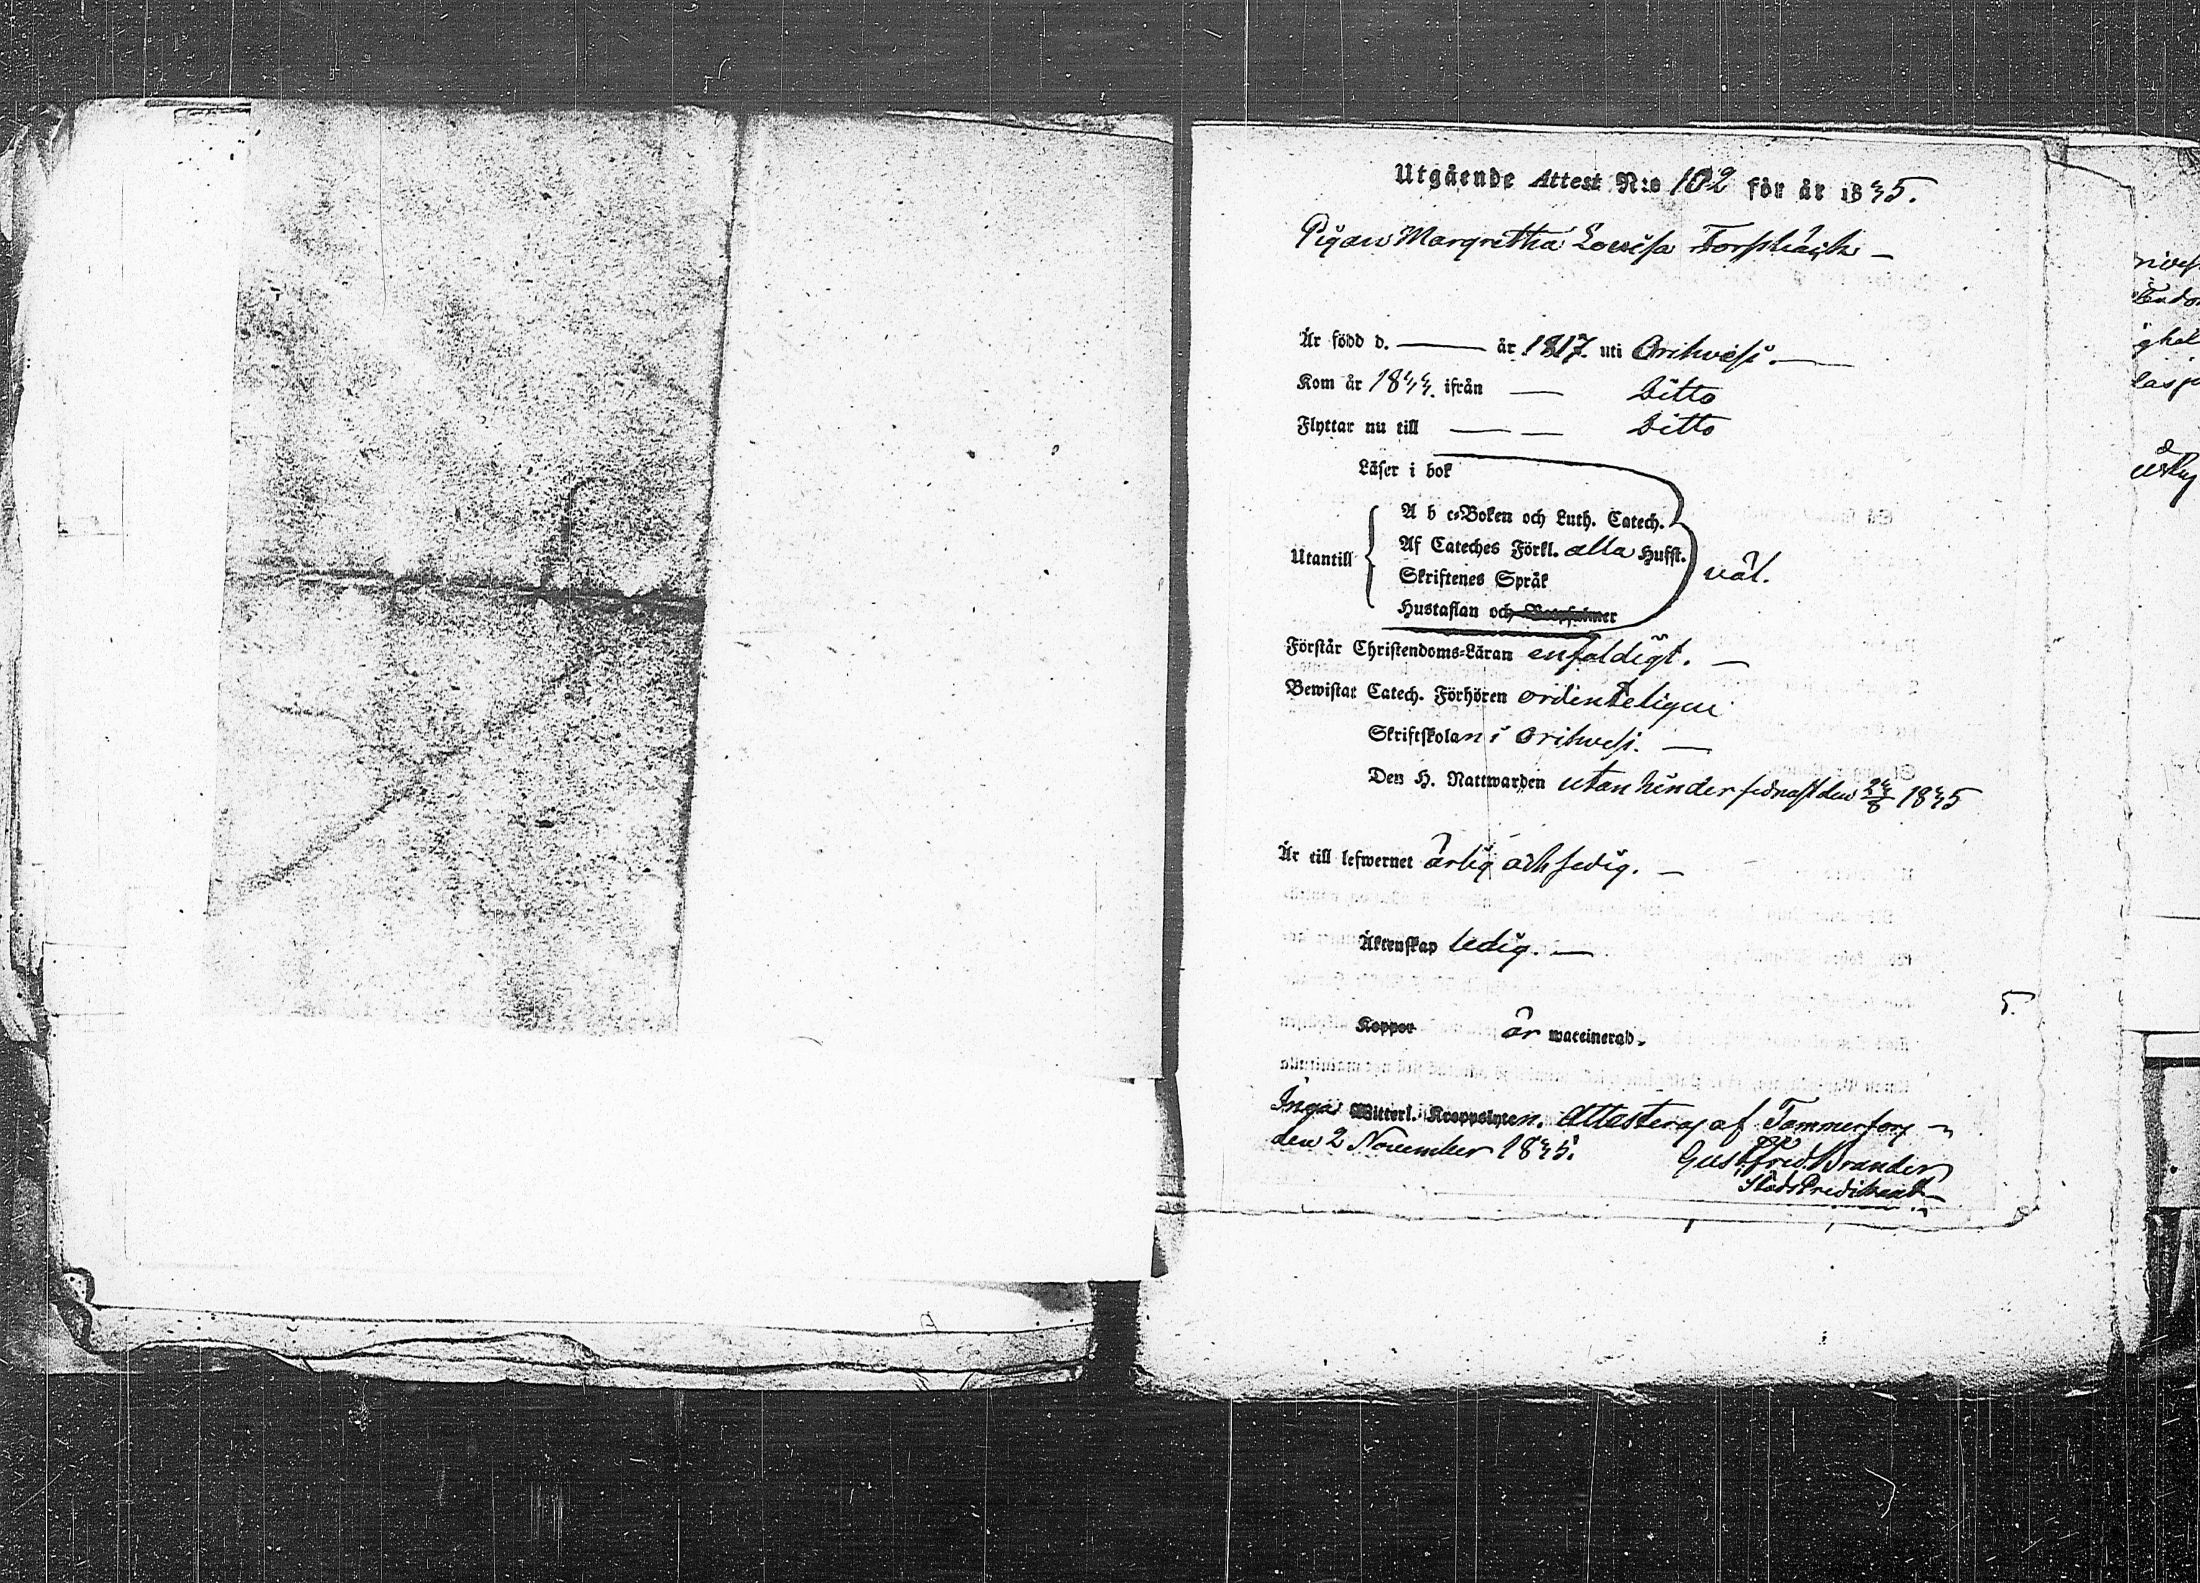 Utgående Attest N:o 102 för år 1845.
Pigan Margretha Lovisa Forsbäck —
Är född d. —— år 1817. uti Orihvesi. —
Kom år 1844. ifrån — Ditto
Flyttar nu till — — Ditto
Läser i bok
A b c-Boken och Luth. Catech.
Utantill Af Cateches Förkl. alla Hufst. väl.
Skriftenes Språk
Hustaflan och Botpsalmer
Förstår Christendoms-Läran enfaldigt. —
Bewistat Catech. Förhören ordenteligen
Skriftskolan i Orihvesi. —
Den H. Nattwarden utan hinder sednast den 24/8 1845
Är till lefwernet ärlig och sedig. —
Äktenskap ledig. —
5.
Koppor är waccinerad.
Inga Witterl. Kroppslyten. Attesteras af Tammerfors
den 2 November 1845.
Gust. Fred. Brander
StadsPredikant